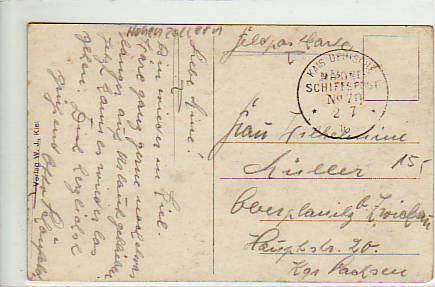 Hohenzollern
Liebe Mine!
Bin wieder in Kiel.
Wäre ganz gerne noch etwas
länger auf Urlaub geblieben
jetzt kann es wieder los
gehen. Sind herzlichst
gegrüßt von Otto
Verlag W. J., Kiel
Feldpostkarte
KAIS. DEUTSCHE
MARINE-
SCHIFFSPOST
No 70
* 2 7 *
Frau Wilhelmine
Müller
Oberplanitz b. Zwickau
Hauptstr. 20.
Kgr. Sachsen
15,-